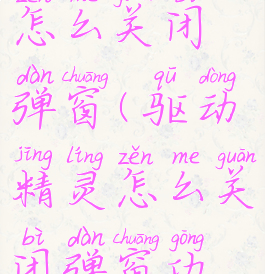 zěn me guān bì
怎么关闭
dàn chuāng qū dòng
弹窗(驱动
jīng líng zěn me guān
精灵怎么关
bì dàn chuāng gōng
闭弹窗功